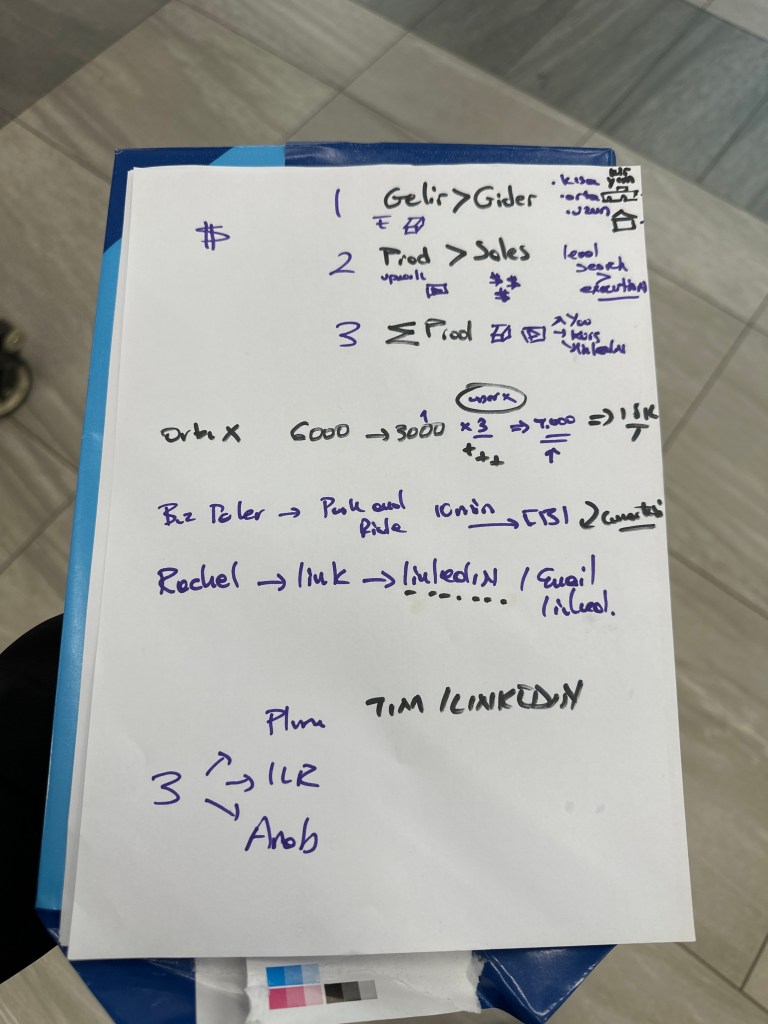 $
1 Gelir > Gider
. kısa
. orta
. uzun
2 Prod > Sales
upwork
$ $
$
lead
search
>
execution
3 Σ Prod
→ You
→ kurs
→ linkedIN
Orta X 6000 → 3000 x 3 ⇒ 7.000 ⇒ 15K
+++
→ Park and
Ride
10 min →
Rachel → link → linkedIN / Email
/ linked.
TIM / LINKEDIN
3 → ILR
Arab